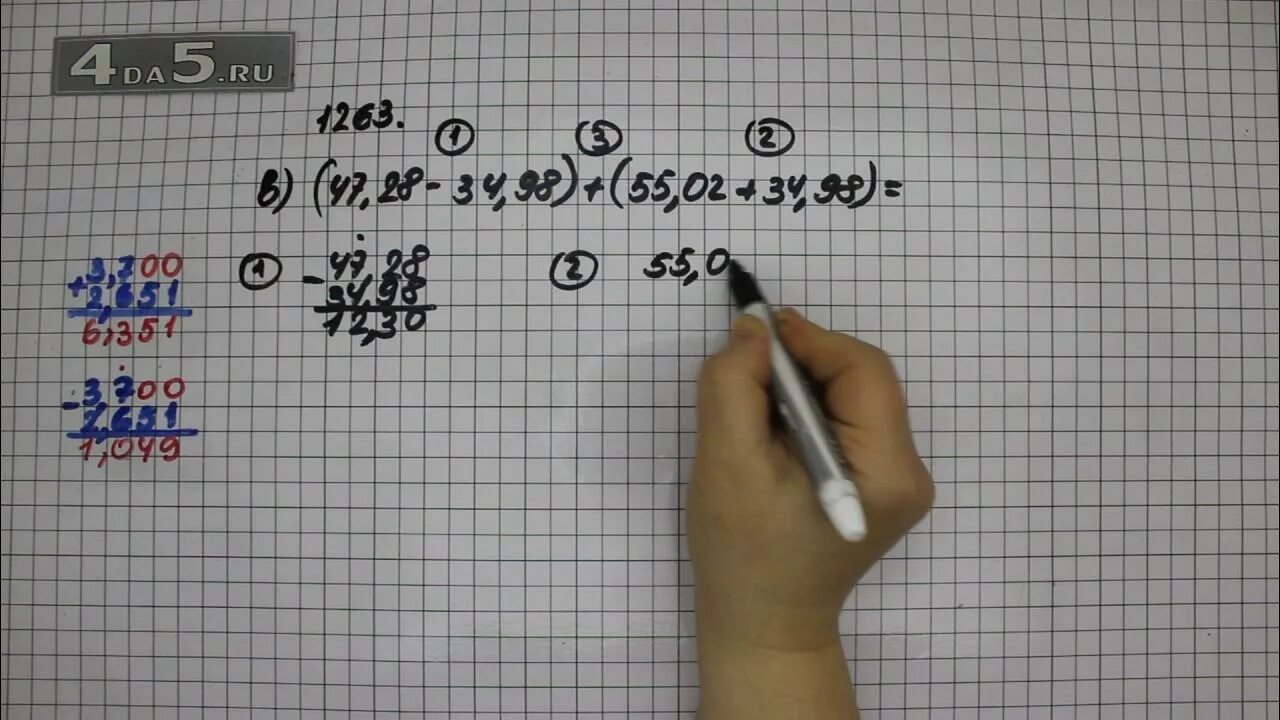 4DA5.RU
1263.
1 3 2
в) (47,28 - 34,98) + (55,02 + 34,98) =
+ 3,700
2,651
6,351
- 3,700
2,651
1,049
1 - 47,28
34,98
12,30
2 55,0